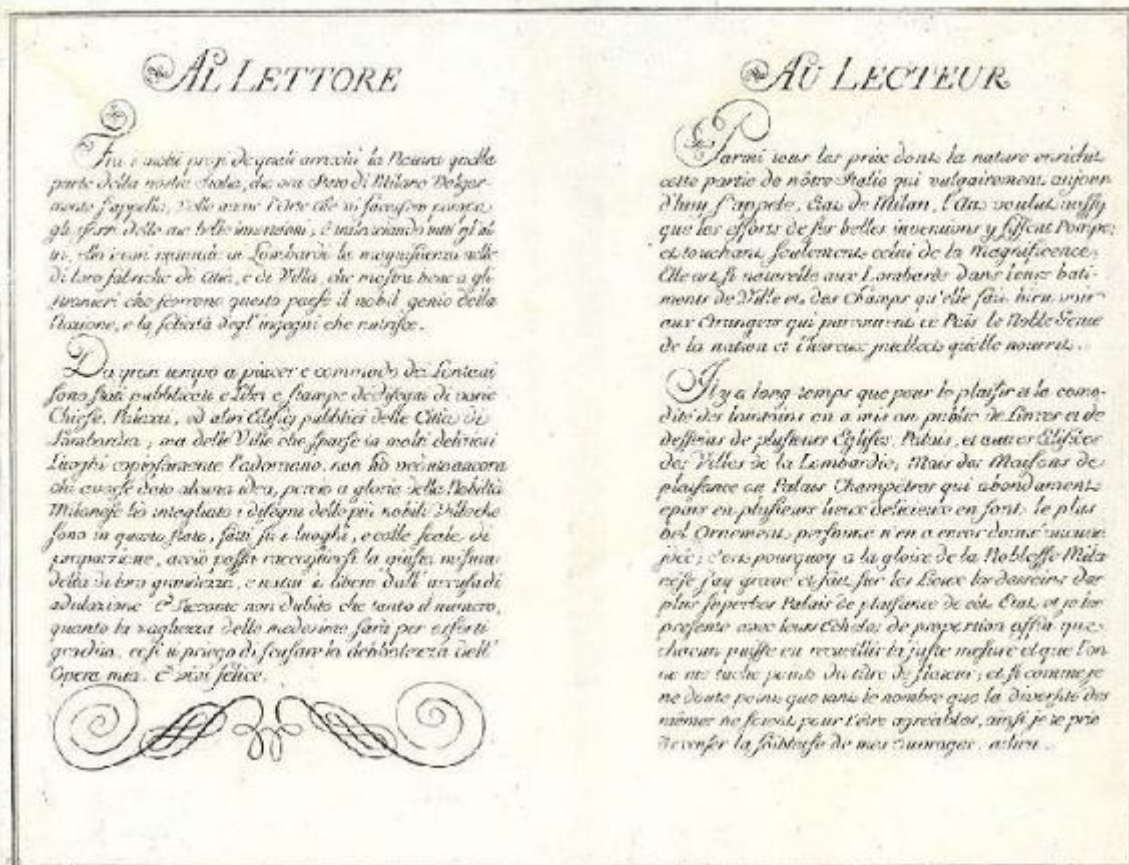 AL LETTORE
Fra i molti pregi de quali arrichì la Natura quella
parte della nostra Italia, che ora Stato di Milano Volgar-
mente s'appella, Volle ancor l'Arte che vi facessero pompa
gli sforzi delle sue belle invenzioni; e tralasciando tutti gl'al
tri, è in Lombardi la magnificenza nelle
di loro fabriche di Città, e di Villa, che mostra bene a gli
stranieri che scorrono questo paese il nobil genio della
Nazione, e la felicità degl'ingegni che nutrisce.
Da gran tempo a piacer e commodo de Lontani
sono stati pubblicati e Libri e stampe de disegni di varie
Chiese, Palazzi, ed altri Edifizj pubblici delle Città di
Lombardia; ma delle Ville che sparse in molti deliziosi
Luoghi copiosamente l'adornano, non hò veduto ancora
chi avesse dato alcuna idea, perciò a gloria della Nobiltà
Milanese hò intagliato i disegni delle più nobili Ville che
sono in questo stato, fatti sù i luoghi, e colle scale di
proporzione, acciò possa raccogliersi la giusta misura
della di loro grandezza, e restar io libero dall'accusa di
adulazione. E siccome non dubito che tanto il numero,
quanto la vaghezza delle medesime sarà per esserti
gradito, così ti priego di scusare la debolezza dell'
Opera mia. E vivi felice.
AU LECTEUR
Parmi tous les prix dont la nature enrichit
cette partie de nôtre Italie qui vulgairement aujour-
d'huy s'appele, Etat de Milan, l'Art voulut aussy
que les efforts de ses belles inventions y fissent Pompe;
et touchant seulement celui de la Magnificence,
Elle est si naturelle aux Lombards dans leurs bati-
ments de Ville et des Champs qu'elle fait bien voir
aux Etrangers qui parcourent ce Païs le Noble Genie
de la nation et l'heureux qu'elle nourrit.
Il y a long temps que pour le plaisir et la como-
dité des lointains on a mis au public de Livres et de
desseins de plusieurs Eglises, Palais, et autres Edifices
des Villes de la Lombardie; Mais des Maisons de
plaisance ou Palais Champetres qui abondament
epars en plusieurs lieux delicieux en font le plus
bel Ornement, personne n'en a encor donné aucune
idée; c'est pourquoy a la gloire de la Noblesse Mila
nese j'ay gravé et fait sur les Lieux les desseins des
plus superbes Palais de plaisance de cèt Etat, et je les
presente avec leurs Echeles de proportion affin que
chacun puisse en recueillir la juste mesure et que l'on
ne me tache point du titre de flateur; et si comme je
ne doute point que tant le nombre que la diversité des
mêmes ne seront pour t'être agreables, ainsi je te prie
d'excuser la foiblesse de mes ouvrages. adieu.